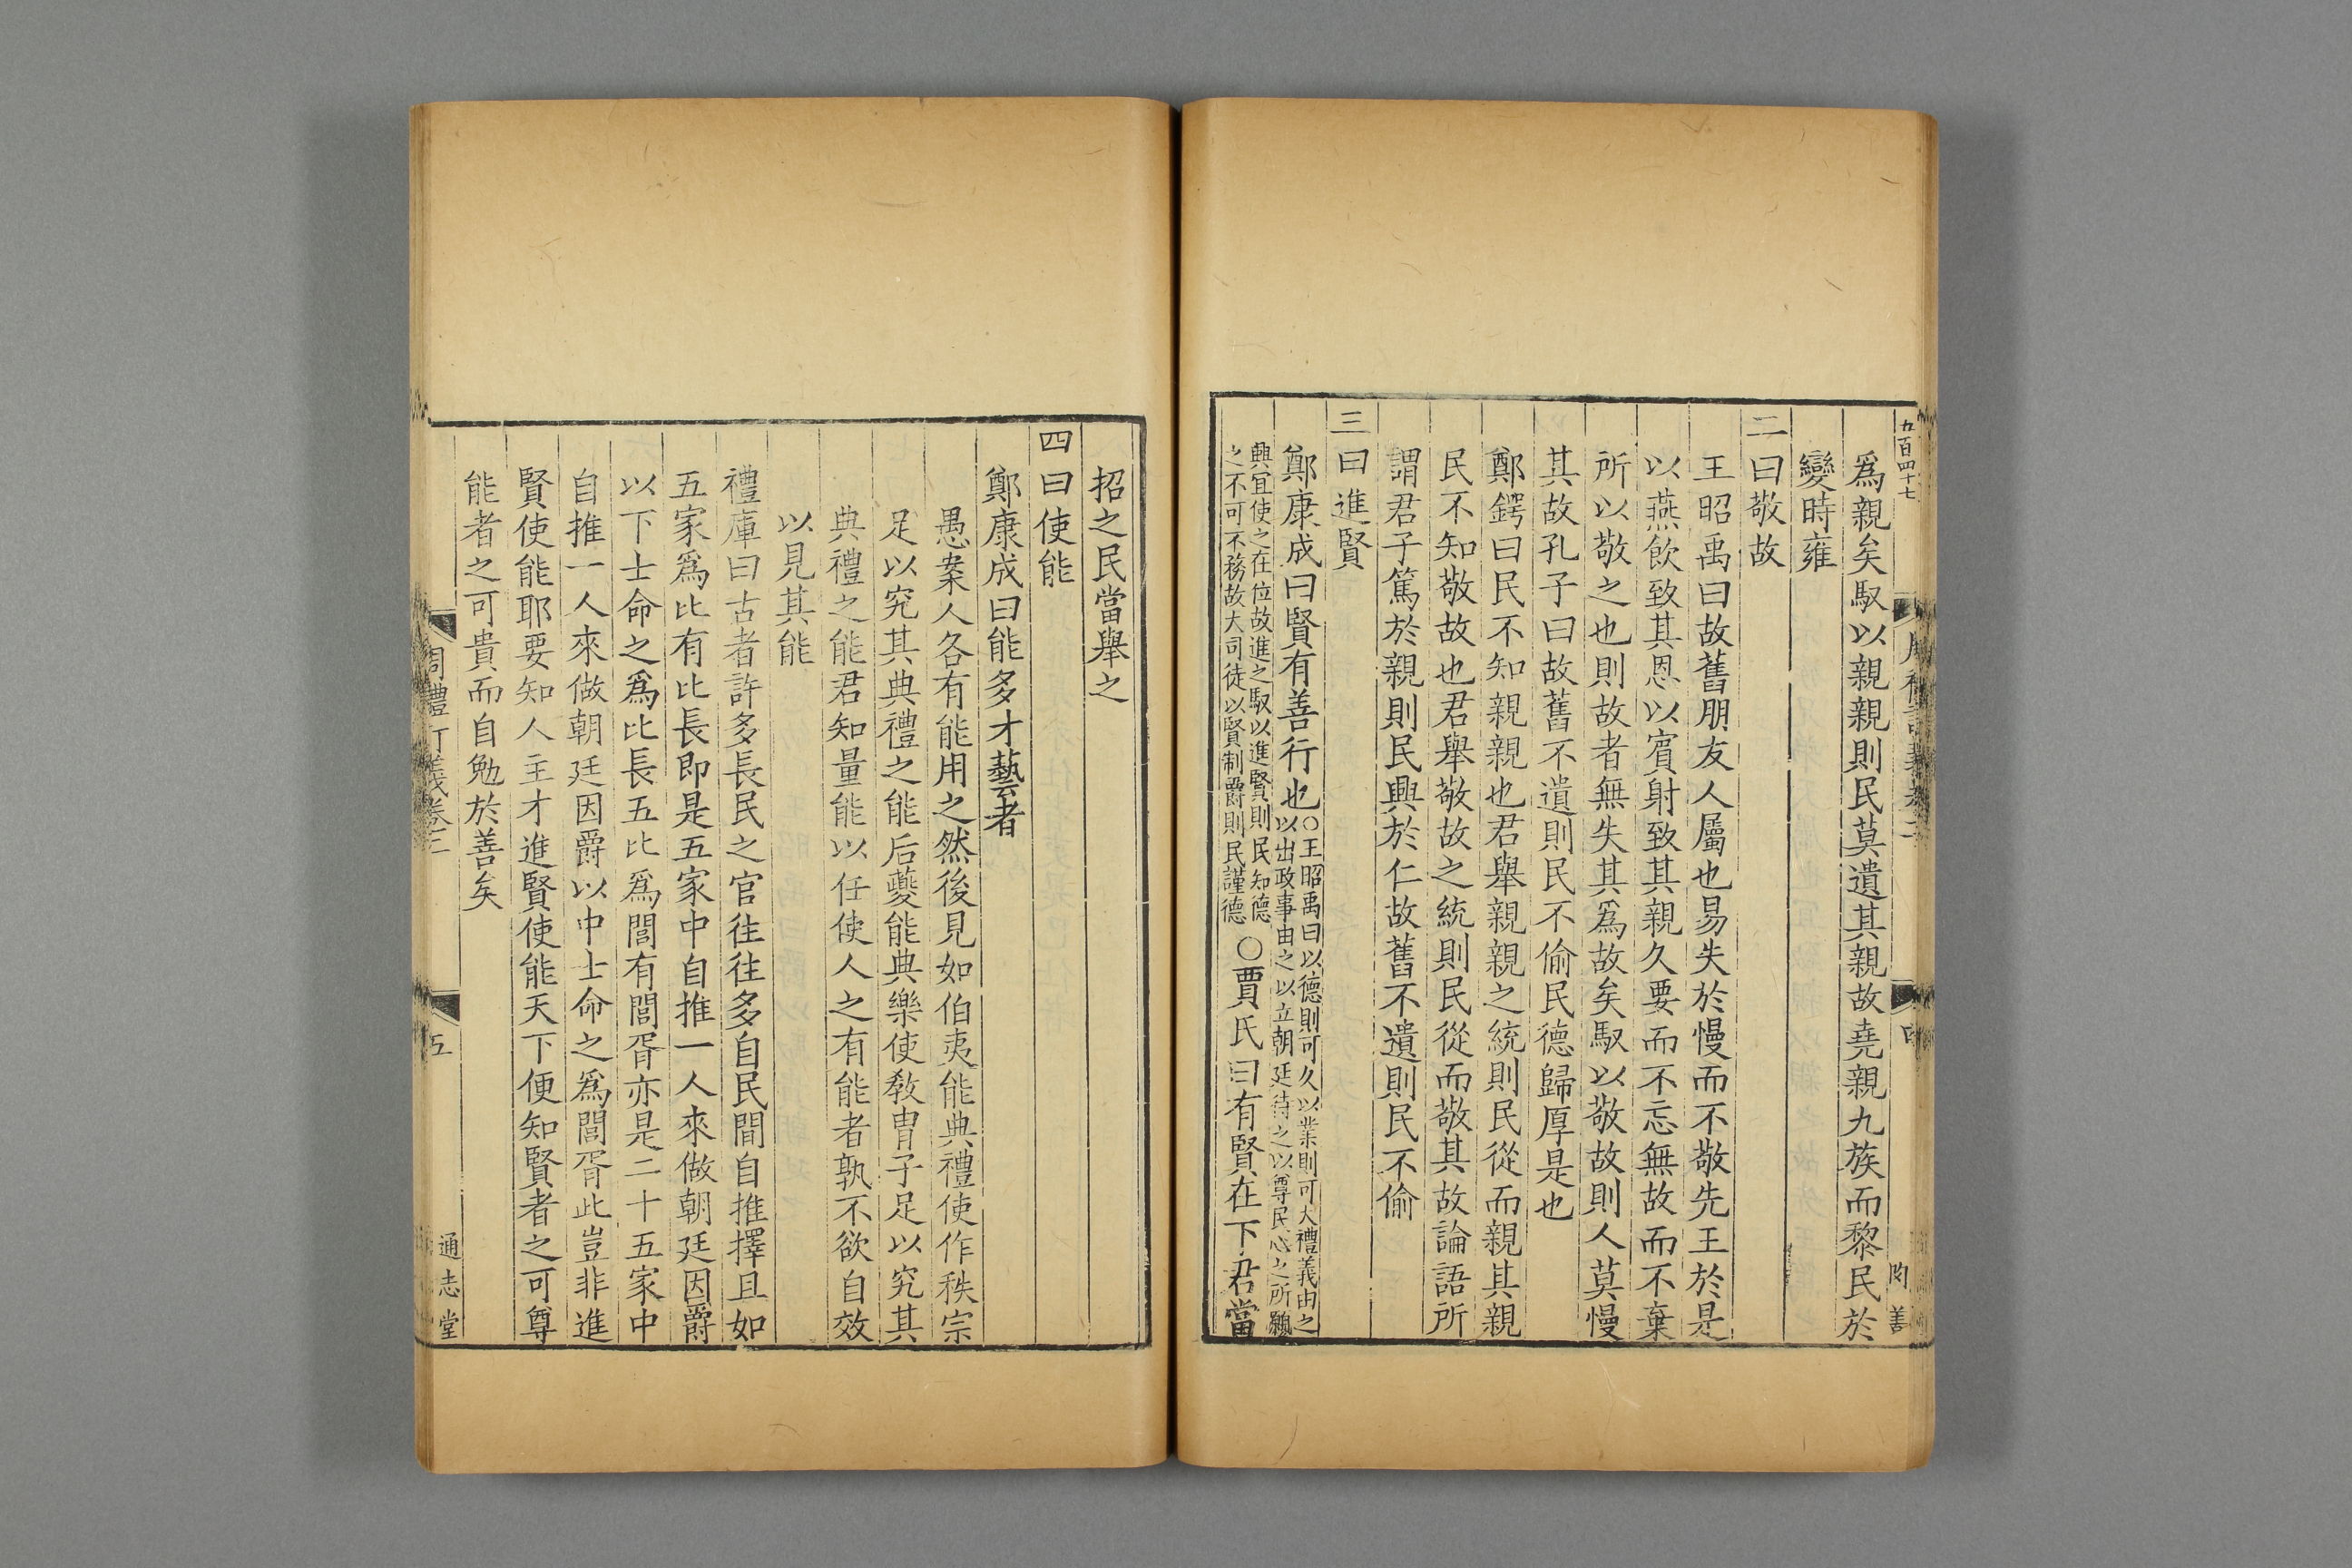 五百四十七
四
為親矣馭以親親則民莫遺其親故堯親九族而黎民於
變時雍
二曰敬故
王昭禹曰故舊朋友人屬也易失於慢而不敬先王於是
以燕飲致其恩以賓射致其親久要而不忘無故而不棄
所以敬之也則故者無失其為故矣馭以敬故則人莫慢
其故孔子曰故舊不遺則民不偷民德歸厚是也
鄭鍔曰民不知親親也君舉親親之統則民從而親其親
民不知敬故也君舉敬故之統則民從而敬其故論語所
謂君子篤於親則民興於仁故舊不遺則民不偷
三曰進賢
鄭康成曰賢有善行也○王昭禹曰以德則可久以業則可大禮義由之
以出政事由之以立朝廷待之以尊民心之所願
興宜使之在位故進之馭以進賢則民知德
之不可不務故大司徒以賢制爵則民謹德
○賈氏曰有賢在下君當
招之民當舉之
四曰使能
鄭康成曰能多才藝者
愚案人各有能用之然後見如伯夷能典禮使作秩宗
足以究其典禮之能后夔能典樂使敎胄子足以究其
典禮之能君知量能以任使人之有能者孰不欲自效
以見其能
禮庫曰古者許多長民之官往往多自民間自推擇且如
五家為比有比長即是五家中自推一人來做朝廷因爵
以下士命之為比長五比為閭有閭胥亦是二十五家中
自推一人來做朝廷因爵以中士命之為閭胥此豈非進
賢使能耶要知人主才進賢使能天下便知賢者之可尊
能者之可貴而自勉於善矣
周禮訂義卷三
五
通志堂